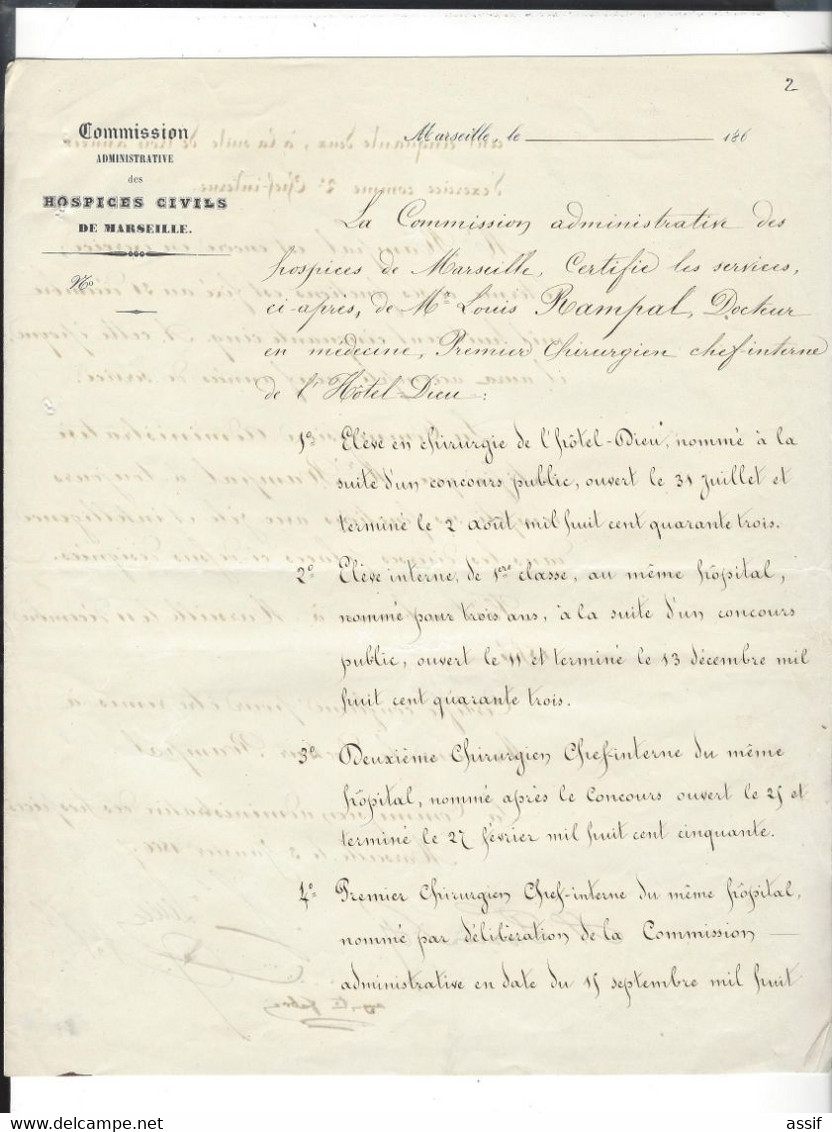 2
Commission
ADMINISTRATIVE
des
HOSPICES CIVILS
DE MARSEILLE.
No
Marseille, le 186
La Commission administrative des
hospices de Marseille, Certifie les services,
ci-après, de Mr Louis Rampal, Docteur
en médecine, Premier Chirurgien chef-interne
de l'Hôtel-Dieu :
1o Elève en chirurgie de l'hôtel-Dieu, nommé à la
suite d'un concours public, ouvert le 31 juillet et
terminé le 2 août mil huit cent quarante trois.
2o Elève interne, de 1ere classe, au même hôpital,
nommé pour trois ans, à la suite d'un concours
public, ouvert le 11 et terminé le 13 décembre mil
huit cent quarante trois.
3o Deuxième Chirurgien Chef-interne du même
hôpital, nommé après le Concours ouvert le 25 et
terminé le 27 février mil huit cent cinquante.
4o Premier Chirurgien Chef-interne du même hôpital,
nommé par délibération de la Commission —
administrative en date du 15 septembre mil huit
assif